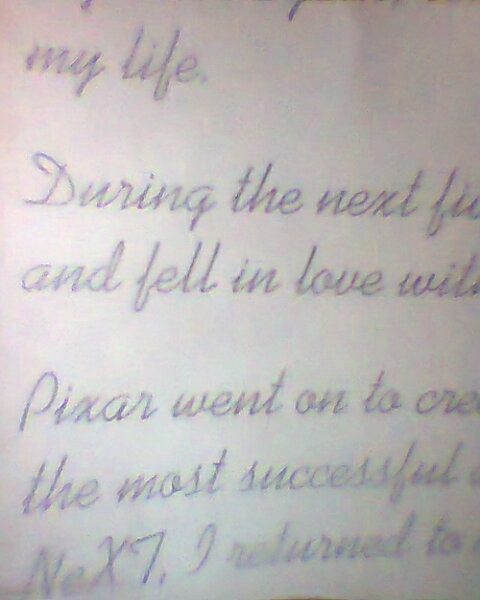 my life.
During the next
and fell in love
Pixar went on to
the most successful
NeXT, I returned to